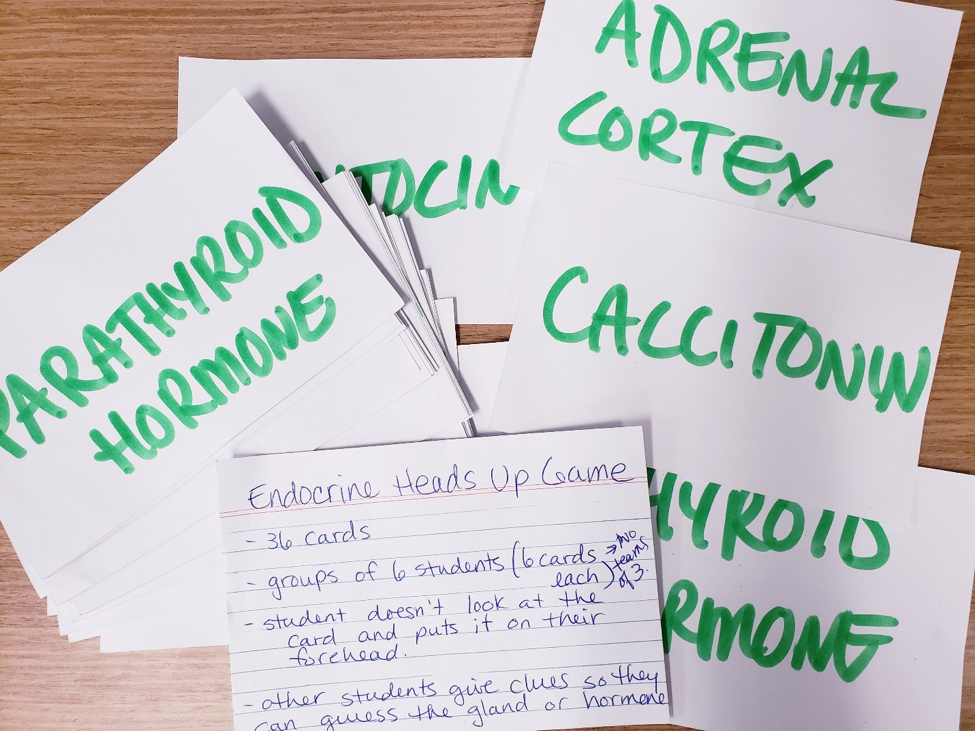 ADRENAL
CORTEX
TOCIN
PARATHYROID
HORMONE
CALCITONIN
HYROID
RMONE
Endocrine Heads Up Game
- 36 cards
- groups of 6 students (6 cards each)
→ two
teams
of 3.
- student doesn't look at the
card and puts it on their
forehead.
- other students give clues so they
can guess the gland or hormone